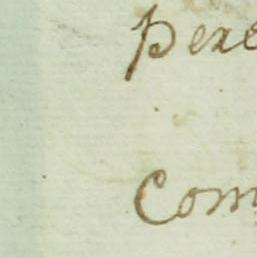 pere
Com